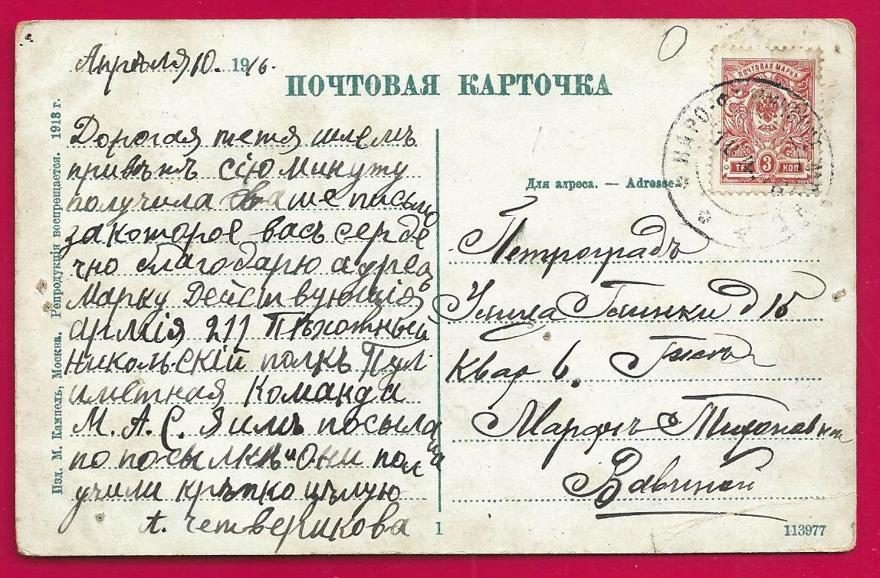 Апрѣля 10. 1916.
ПОЧТОВАЯ КАРТОЧКА
Дорогая тетя шлемъ
привѣтъ сію минуту
получила Ваше письмо
за которое васъ серде
чно благодарю адресъ
Марку Действующія
армія 211 Пѣхотный
Никольскій полкъ Пул
иметная Команда
М. А. С. Я имъ посыла
по посылкѣ и они пол
учили крѣпко цѣлую
А. Четверикова
Для адреса. — Adresse.
Петроградъ
Улица Глинки д 15
Квар 6.
Марфѣ Тихоновнѣ
ПОЧТОВАЯ МАРКА
3
КОП
НАРО-Ф
Изд. М. Кампель, Москва. Репродукція воспрещается. 1913 г.
1
113977